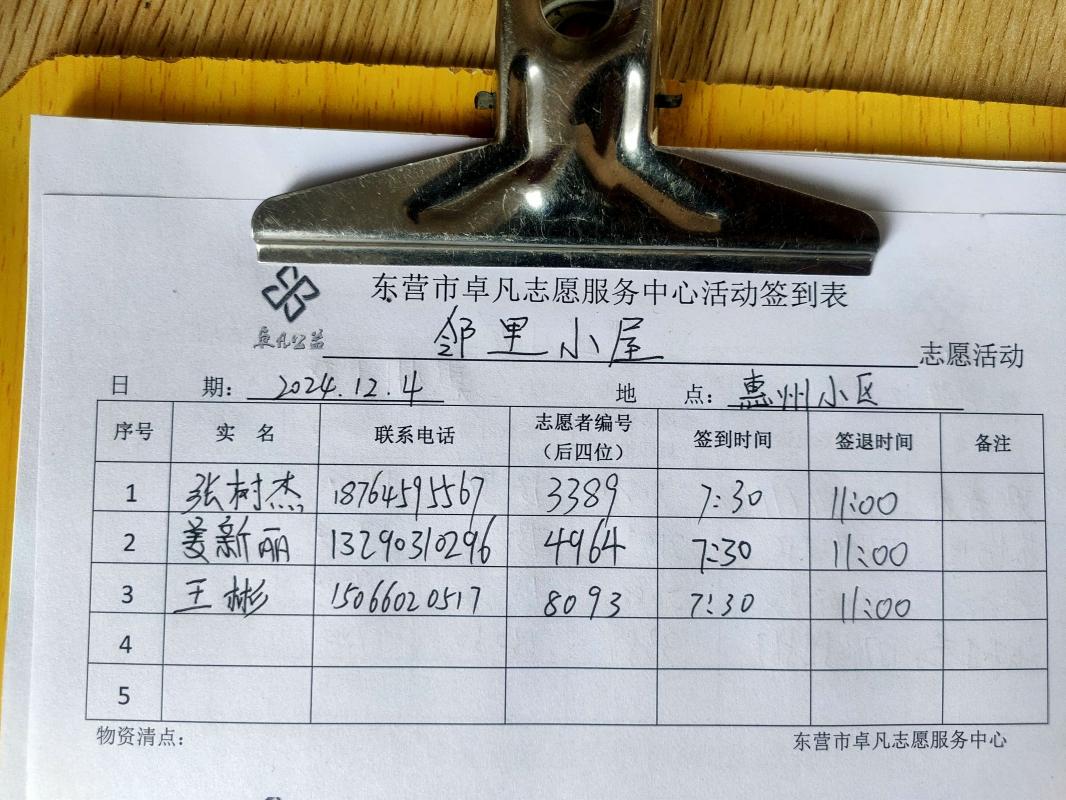 东营市卓凡志愿服务中心活动签到表
卓凡公益 邻里小屋 志愿活动
日 期： 2024.12.4 地 点： 惠州小区
序号 实 名 联系电话 志愿者编号（后四位） 签到时间 签退时间 备注
1 张树杰 18764595567 3389 7:30 11:00
2 姜新丽 13290310296 4964 7:30 11:00
3 王彬 15066020517 8093 7:30 11:00
4
5
物资清点： 东营市卓凡志愿服务中心